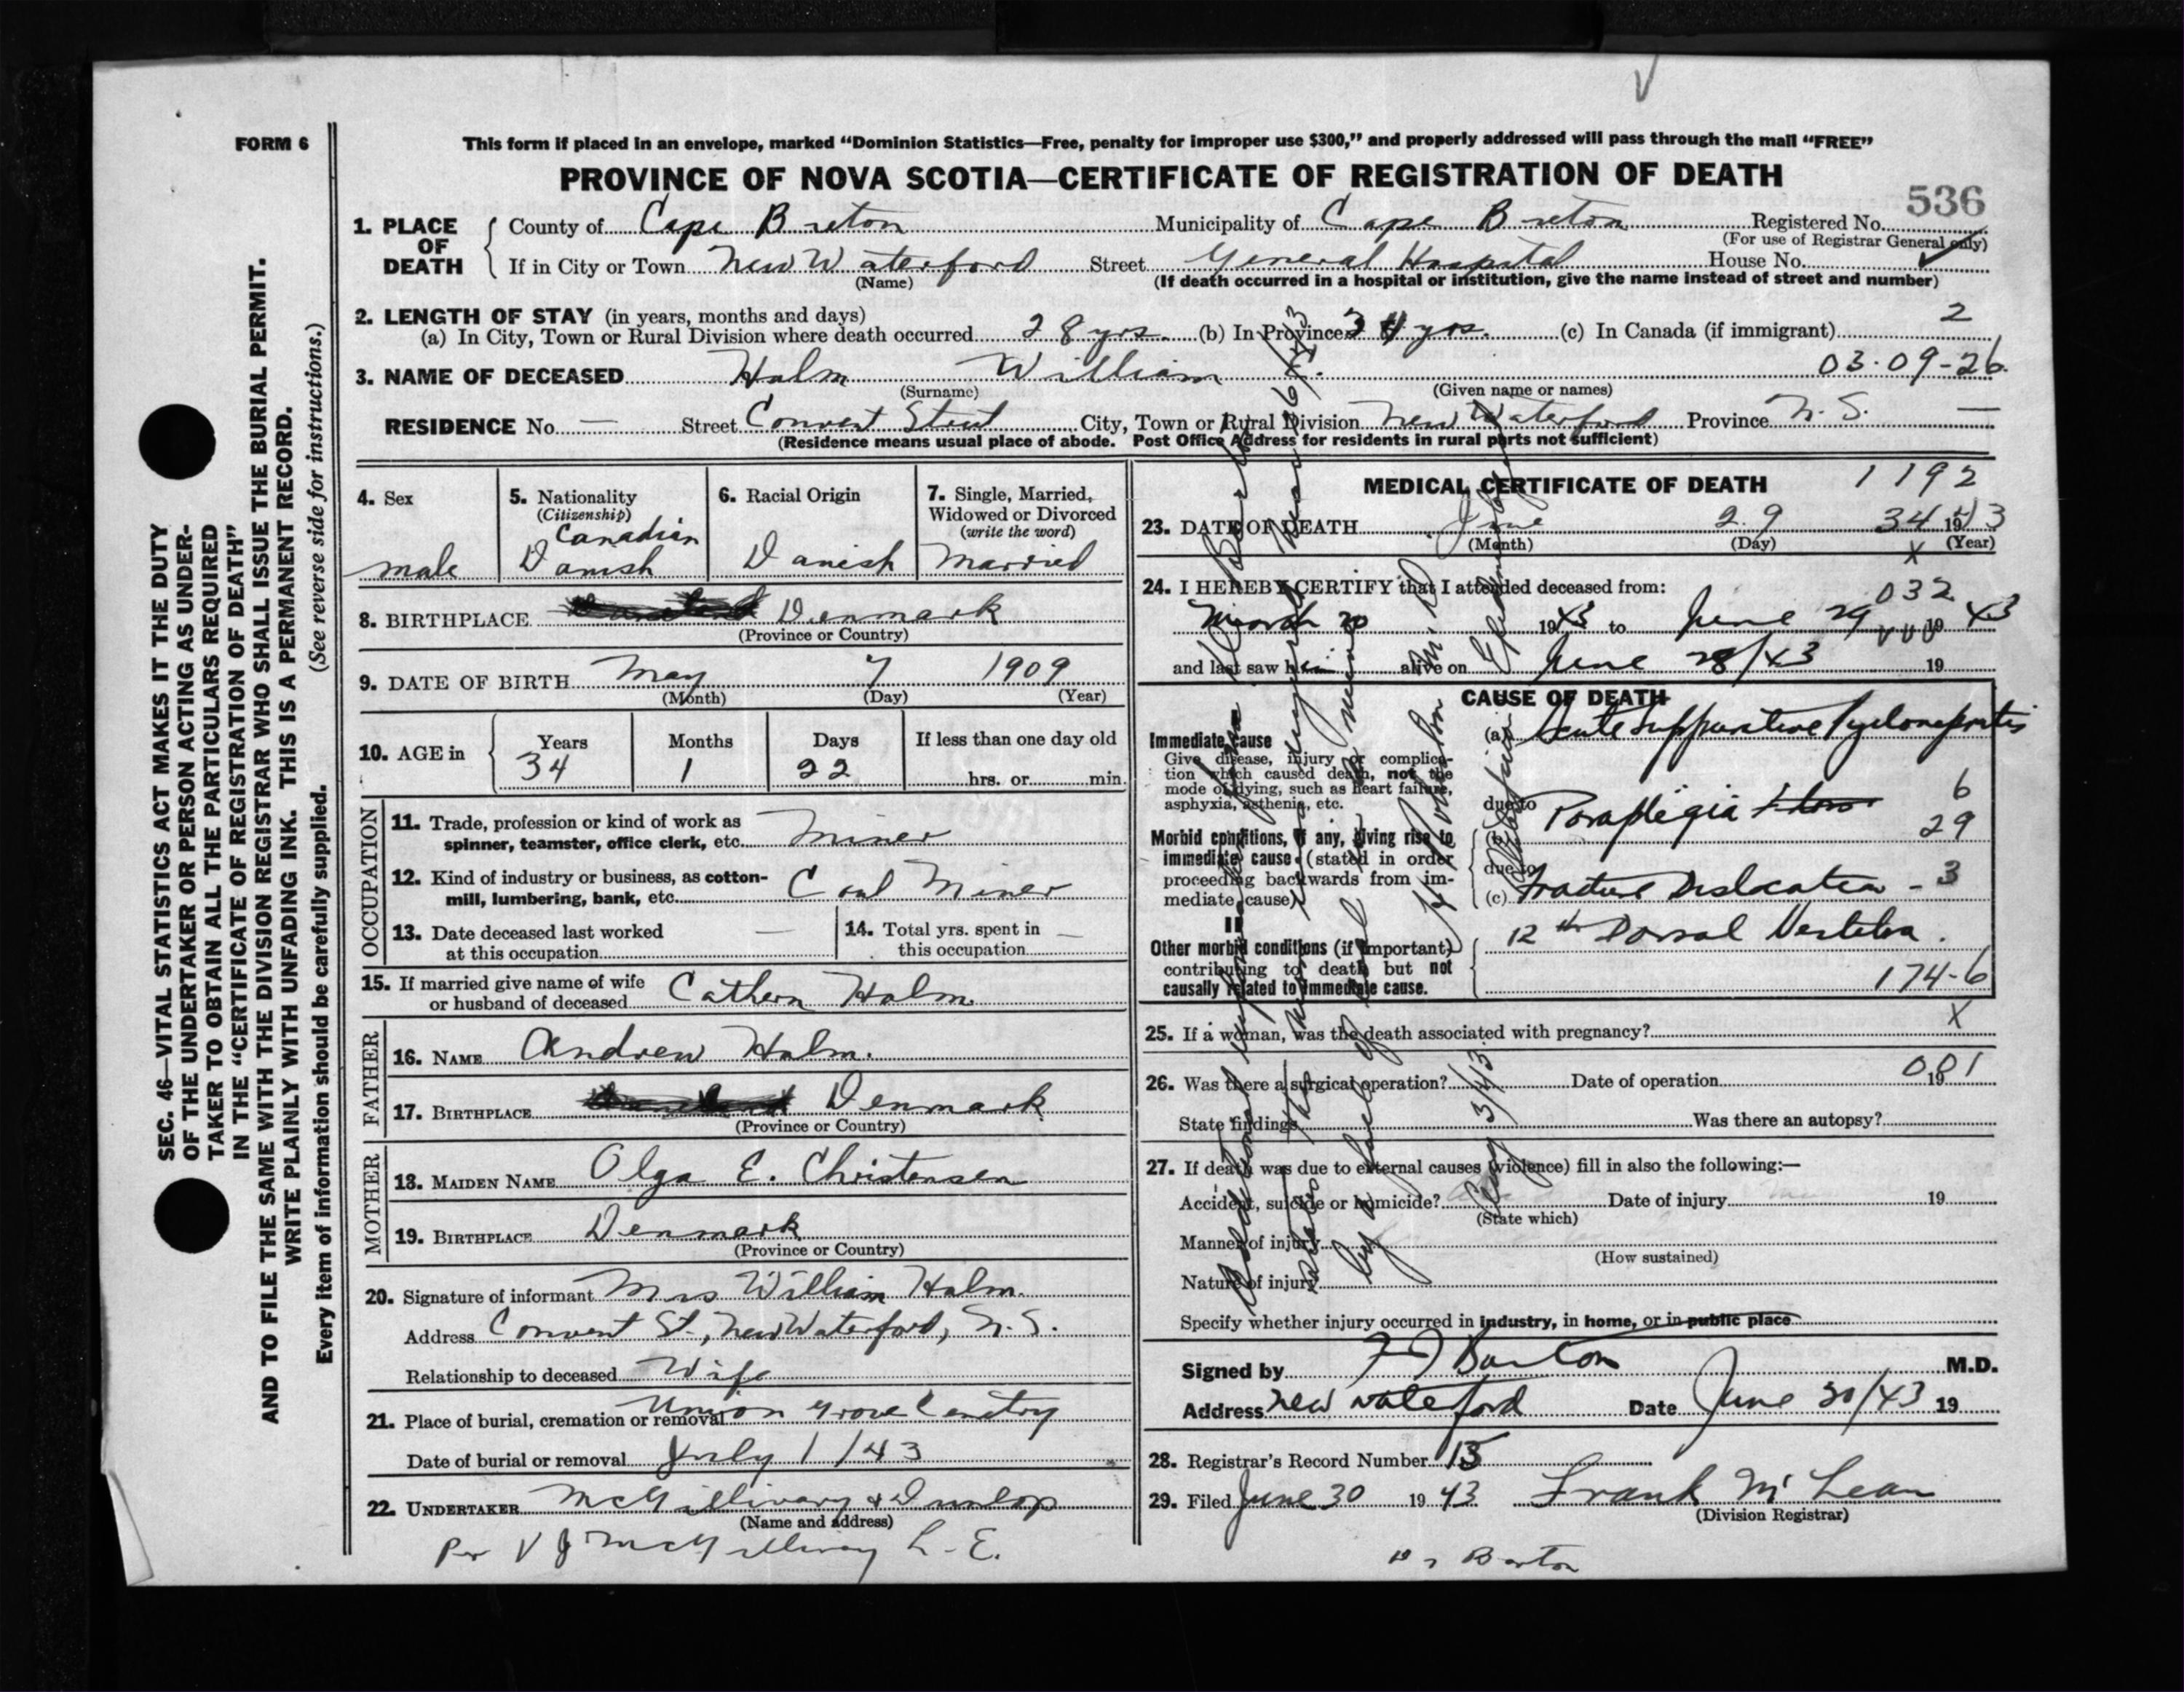 FORM 6
This form if placed in an envelope, marked "Dominion Statistics—Free, penalty for improper use $300," and properly addressed will pass through the mail "FREE"
PROVINCE OF NOVA SCOTIA—CERTIFICATE OF REGISTRATION OF DEATH
536
1. PLACE OF DEATH
County of Cape Breton Municipality of Cape Breton Registered No.
(For use of Registrar General only)
If in City or Town New Waterford Street General Hospital House No.
(Name)
(If death occurred in a hospital or institution, give the name instead of street and number)
2. LENGTH OF STAY (in years, months and days)
(a) In City, Town or Rural Division where death occurred 28 yrs. (b) In Province 34 yrs. (c) In Canada (if immigrant) 2
03-09-26
3. NAME OF DECEASED Holm William E.
(Surname) (Given name or names)
RESIDENCE No. — Street Convent Street City, Town or Rural Division New Waterford Province N.S. —
(Residence means usual place of abode. Post Office Address for residents in rural parts not sufficient)
4. Sex
male
5. Nationality
(Citizenship)
Canadian
Danish
6. Racial Origin
Danish
7. Single, Married, Widowed or Divorced
(write the word)
Married
8. BIRTHPLACE Denmark
(Province or Country)
9. DATE OF BIRTH May 7 1909
(Month) (Day) (Year)
10. AGE in
Years Months Days If less than one day old
34 1 22 hrs. or min.
OCCUPATION
11. Trade, profession or kind of work as
spinner, teamster, office clerk, etc. Miner
12. Kind of industry or business, as cotton-
mill, lumbering, bank, etc. Coal Miner
13. Date deceased last worked
at this occupation —
14. Total yrs. spent in
this occupation —
15. If married give name of wife
or husband of deceased Cathern Holm
FATHER
16. NAME Andrew Holm.
17. BIRTHPLACE Denmark
(Province or Country)
MOTHER
18. MAIDEN NAME Olga E. Christensen
19. BIRTHPLACE Denmark
(Province or Country)
20. Signature of informant Mrs William Holm.
Address Convent St., New Waterford, N.S.
Relationship to deceased Wife
21. Place of burial, cremation or removal Union Grove Cemetry
Date of burial or removal July 1/43
22. UNDERTAKER McGillivary & Dunlop
(Name and address)
Per V J McGillivray L.E.
MEDICAL CERTIFICATE OF DEATH
1192
23. DATE OF DEATH June 29 34 1943
(Month) (Day) (Year)
X
24. I HEREBY CERTIFY that I attended deceased from:
032
March 20 1943 to June 29 1943
and last saw him alive on June 28/43 19
CAUSE OF DEATH
Immediate cause
Give disease, injury or complica-
tion which caused death, not the
mode of dying, such as heart failure,
asphyxia, asthenia, etc.
(a) Acute Suppurative Pyelonephritis
due to
6
Morbid conditions, if any, giving rise to
immediate cause (stated in order
proceeding backwards from im-
mediate cause)
(b) Paraplegia
29
due to
(c) Fracture Dislocation - 3
II
12th Dorsal Vertebra.
Other morbid conditions (if important)
contributing to death but not
causally related to immediate cause.
174-6
X
25. If a woman, was the death associated with pregnancy?
26. Was there a surgical operation? Date of operation 19
001
State findings Was there an autopsy?
27. If death was due to external causes (violence) fill in also the following:—
Accident, suicide or homicide? Date of injury 19
(State which)
Manner of injury
(How sustained)
Nature of injury
Specify whether injury occurred in industry, in home, or in public place
Signed by F J Barton M.D.
Address New Waterford Date June 30/43 19
28. Registrar's Record Number 13
29. Filed June 30 1943 Frank McLean
(Division Registrar)
Barton
SEC. 46—VITAL STATISTICS ACT MAKES IT THE DUTY
OF THE UNDERTAKER OR PERSON ACTING AS UNDER-
TAKER TO OBTAIN ALL THE PARTICULARS REQUIRED
IN THE "CERTIFICATE OF REGISTRATION OF DEATH"
AND TO FILE THE SAME WITH THE DIVISION REGISTRAR WHO SHALL ISSUE THE BURIAL PERMIT.
WRITE PLAINLY WITH UNFADING INK. THIS IS A PERMANENT RECORD.
Every item of information should be carefully supplied. (See reverse side for instructions.)